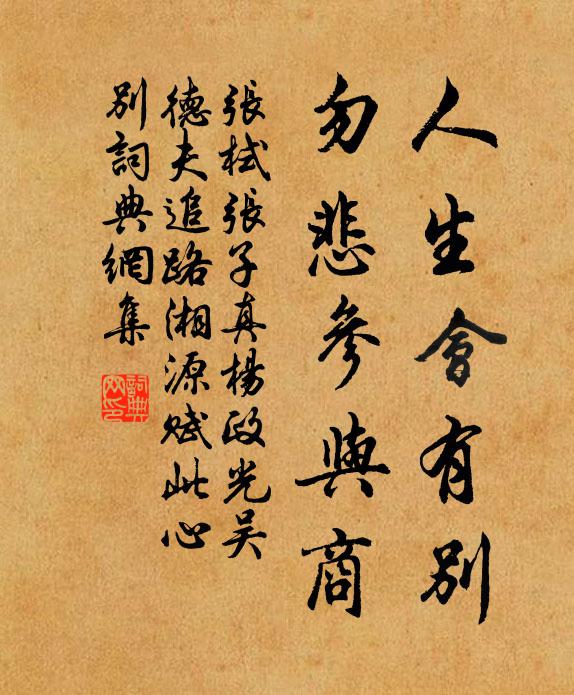 人生會有別
勿悲參與商
張栻張子真楊政光吴
德夫追路湘源賦此心
別詞典網集
詞典
网印